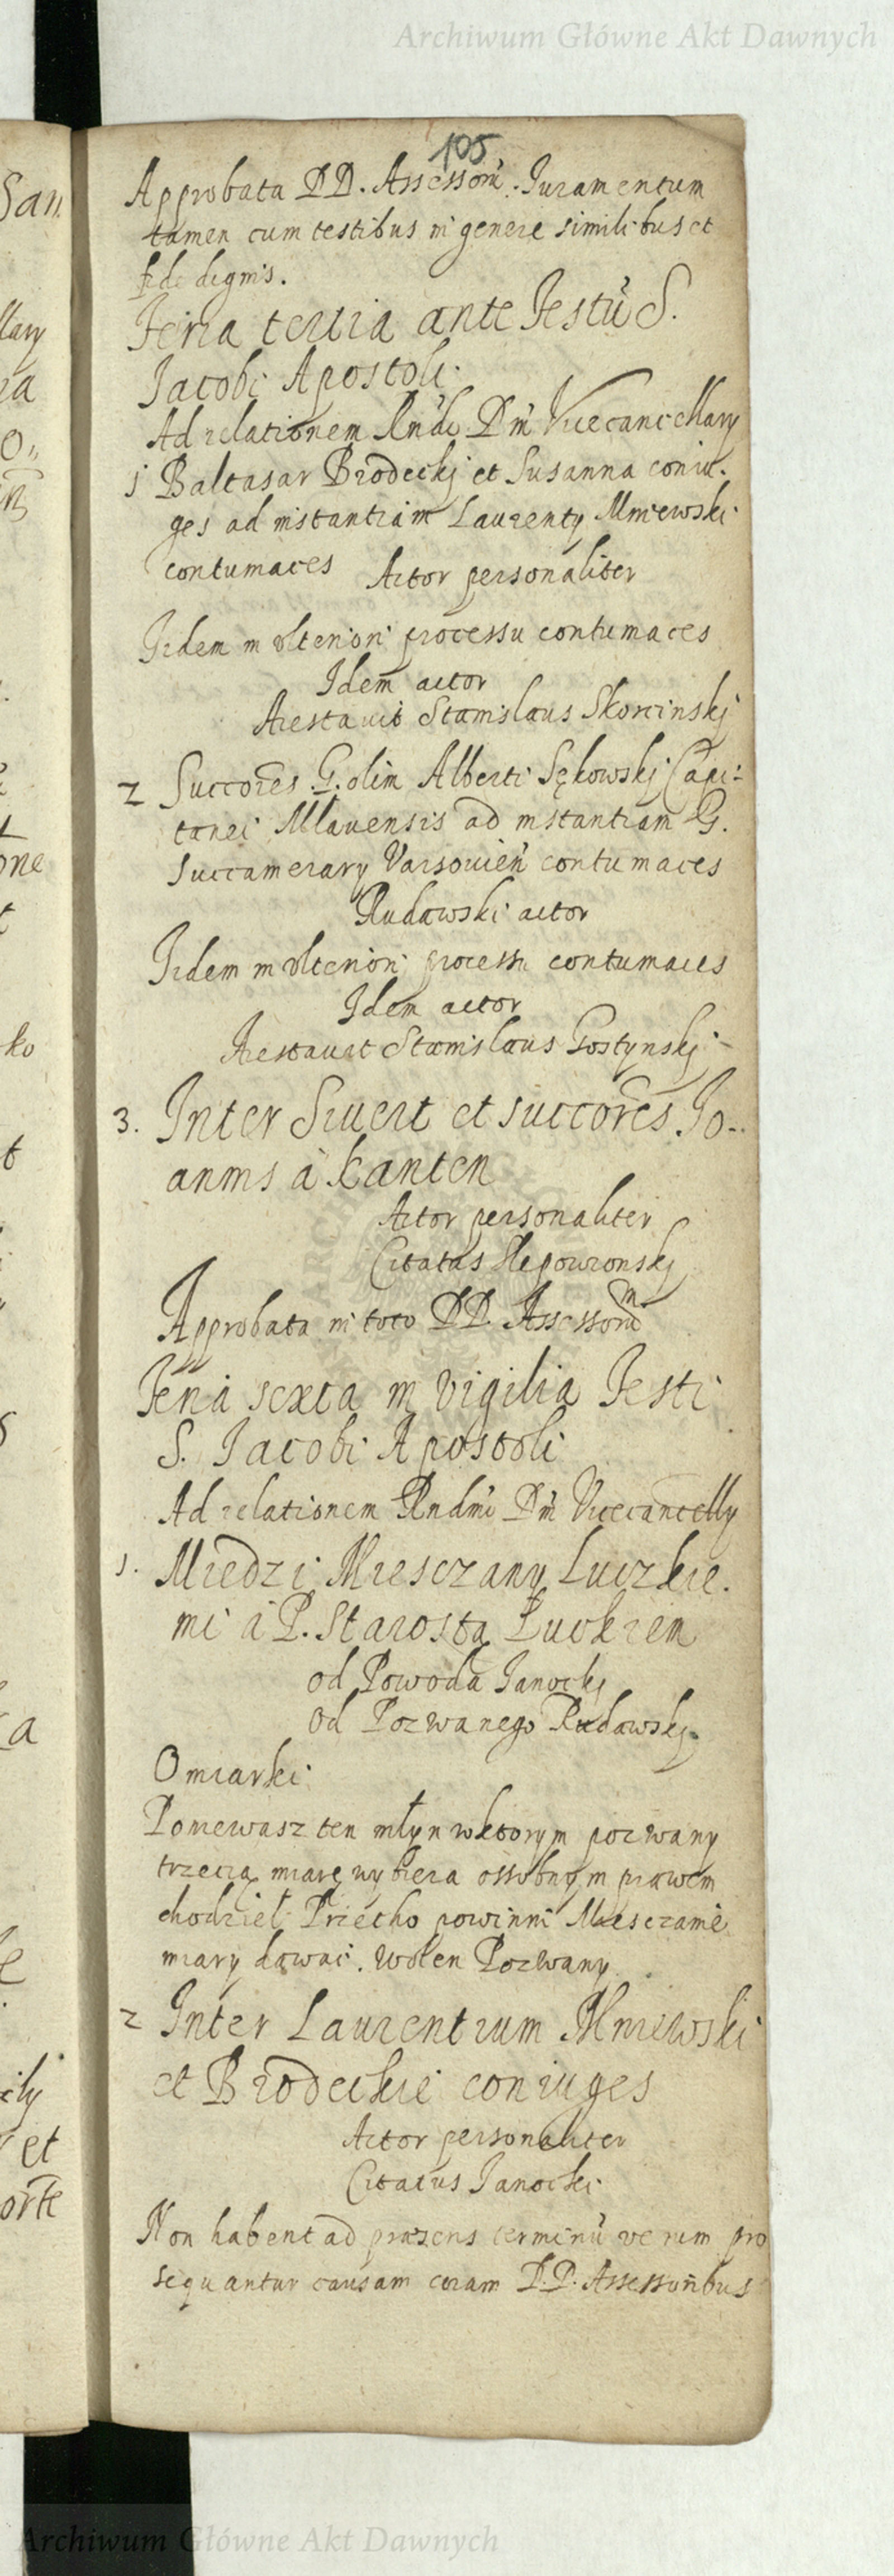 Archiwum Główne Akt Dawnych
105
Approbata DD. Assessorũ. Iuramentum
tamen cum testibus in genere similibus et
fide dignis.
Feria tertia ante Festũ S.
Jacobi Apostoli.
Ad relationem Rndi Dni Vicecancellary
1 Baltasar Brodeckj et Susanna coniu-
ges ad instantiam Laurenty Mniewski
contumaces Actor personaliter
Iidem in vlteriori processu contumaces
Idem actor
Arestauit Stanislaus Skorcinskj
2 Succores G. olim Alberti Sękowskj Capi-
tanei Mlauensis ad instantiam G.
Succamerary Varsouien contumaces
Rudawski actor
Iidem in vlteriori processu contumaces
Idem actor
Arestauit Stanislaus Gostynskj
3. Inter Siuert et succores Jo-
annis à Kanten
Actor personaliter
Citatus Slepowronskj
Approbata in toto DD. Assessorum
Feria sexta in vigilia Festi
S. Jacobi Apostoli
Ad relationem Rndmi Dni Vicecancelly
1. Miedzi Miesczany Luczkie-
mi a P. Starostą Łuckiem
od Powoda Janockj
Od Pozwanego Rudawskj.
O miarki
Poniewasz ten młyn wktorym pozwany
trzecią miarę wybiera ossobnym prawem
chodzieł Przetho powinni Miesczanie
miary dawac. Wolen Pozwany
2 Inter Laurentium Mniewski
et Brodeckie coniuges
Actor personaliter
Citatus Janocki
Non habent ad præsens terminũ verum pro
sequantur causam coram D.D. Assessoribus
Archiwum Główne Akt Dawnych